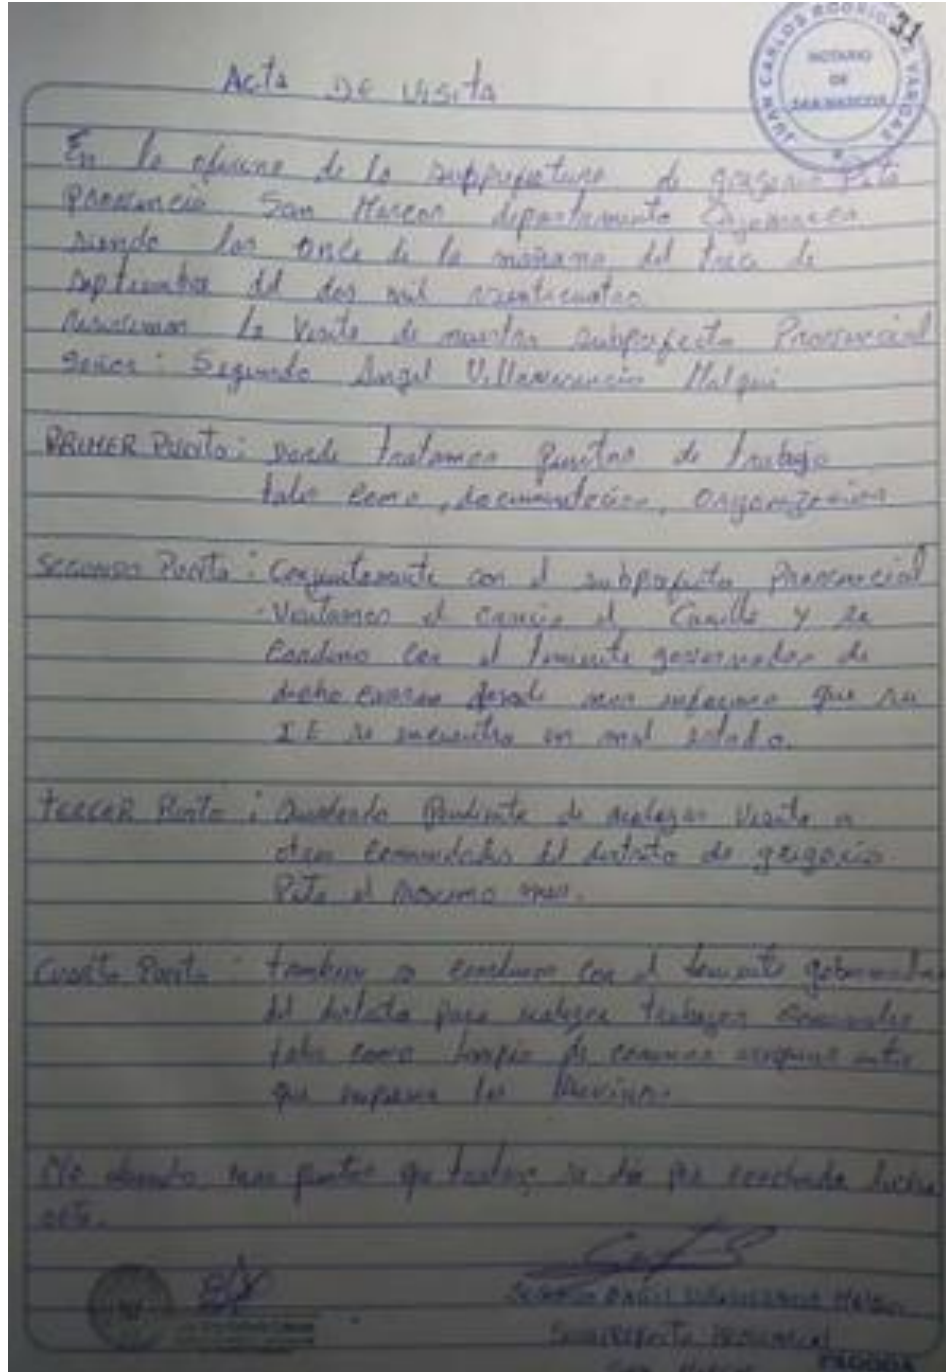 31
JUAN CARLOS RODRIGO VARGAS
NOTARIO
DE
SAN MARCOS
Acta DE Visita
En la oficina de la subprefectura de gregorio Pita
Provincia San Marcos departamento Cajamarca.
siendo las once de la mañana del trece de
septiembre del dos mil veinticuatro
recibimos la visita de nuestro subprefecto Provincial
Señor: Segundo Angel Villavicencio Malqui
PRIMER Punto: Donde tratamos puntos de trabajo
tales como, documentación, organización.
SEGUNDO Punto: Conjuntamente con el subprefecto Provincial
Visitamos el caserio el Cauillo y se
Cordino con el teniente governador de
dicho caserio donde nos informo que su
I E se encuentra en mal estado.
TERCER Punto: Quedando Pendiente de realizar Visita a
otras comunidades del distrito de gregorio
Pita el proximo mes.
Cuarto Punto: tambien se cordino con el teniente gobernador
del distrito para realizar trabajos comunales
tales como limpia de caminos
que empiesen las lluvias.
No abiendo mas puntos que tratar, se dio por concluida dicha
acta.
SEGUNDO ANGEL VILLAVICENCIO Malqui
SUBPREFECTO PROVINCIAL